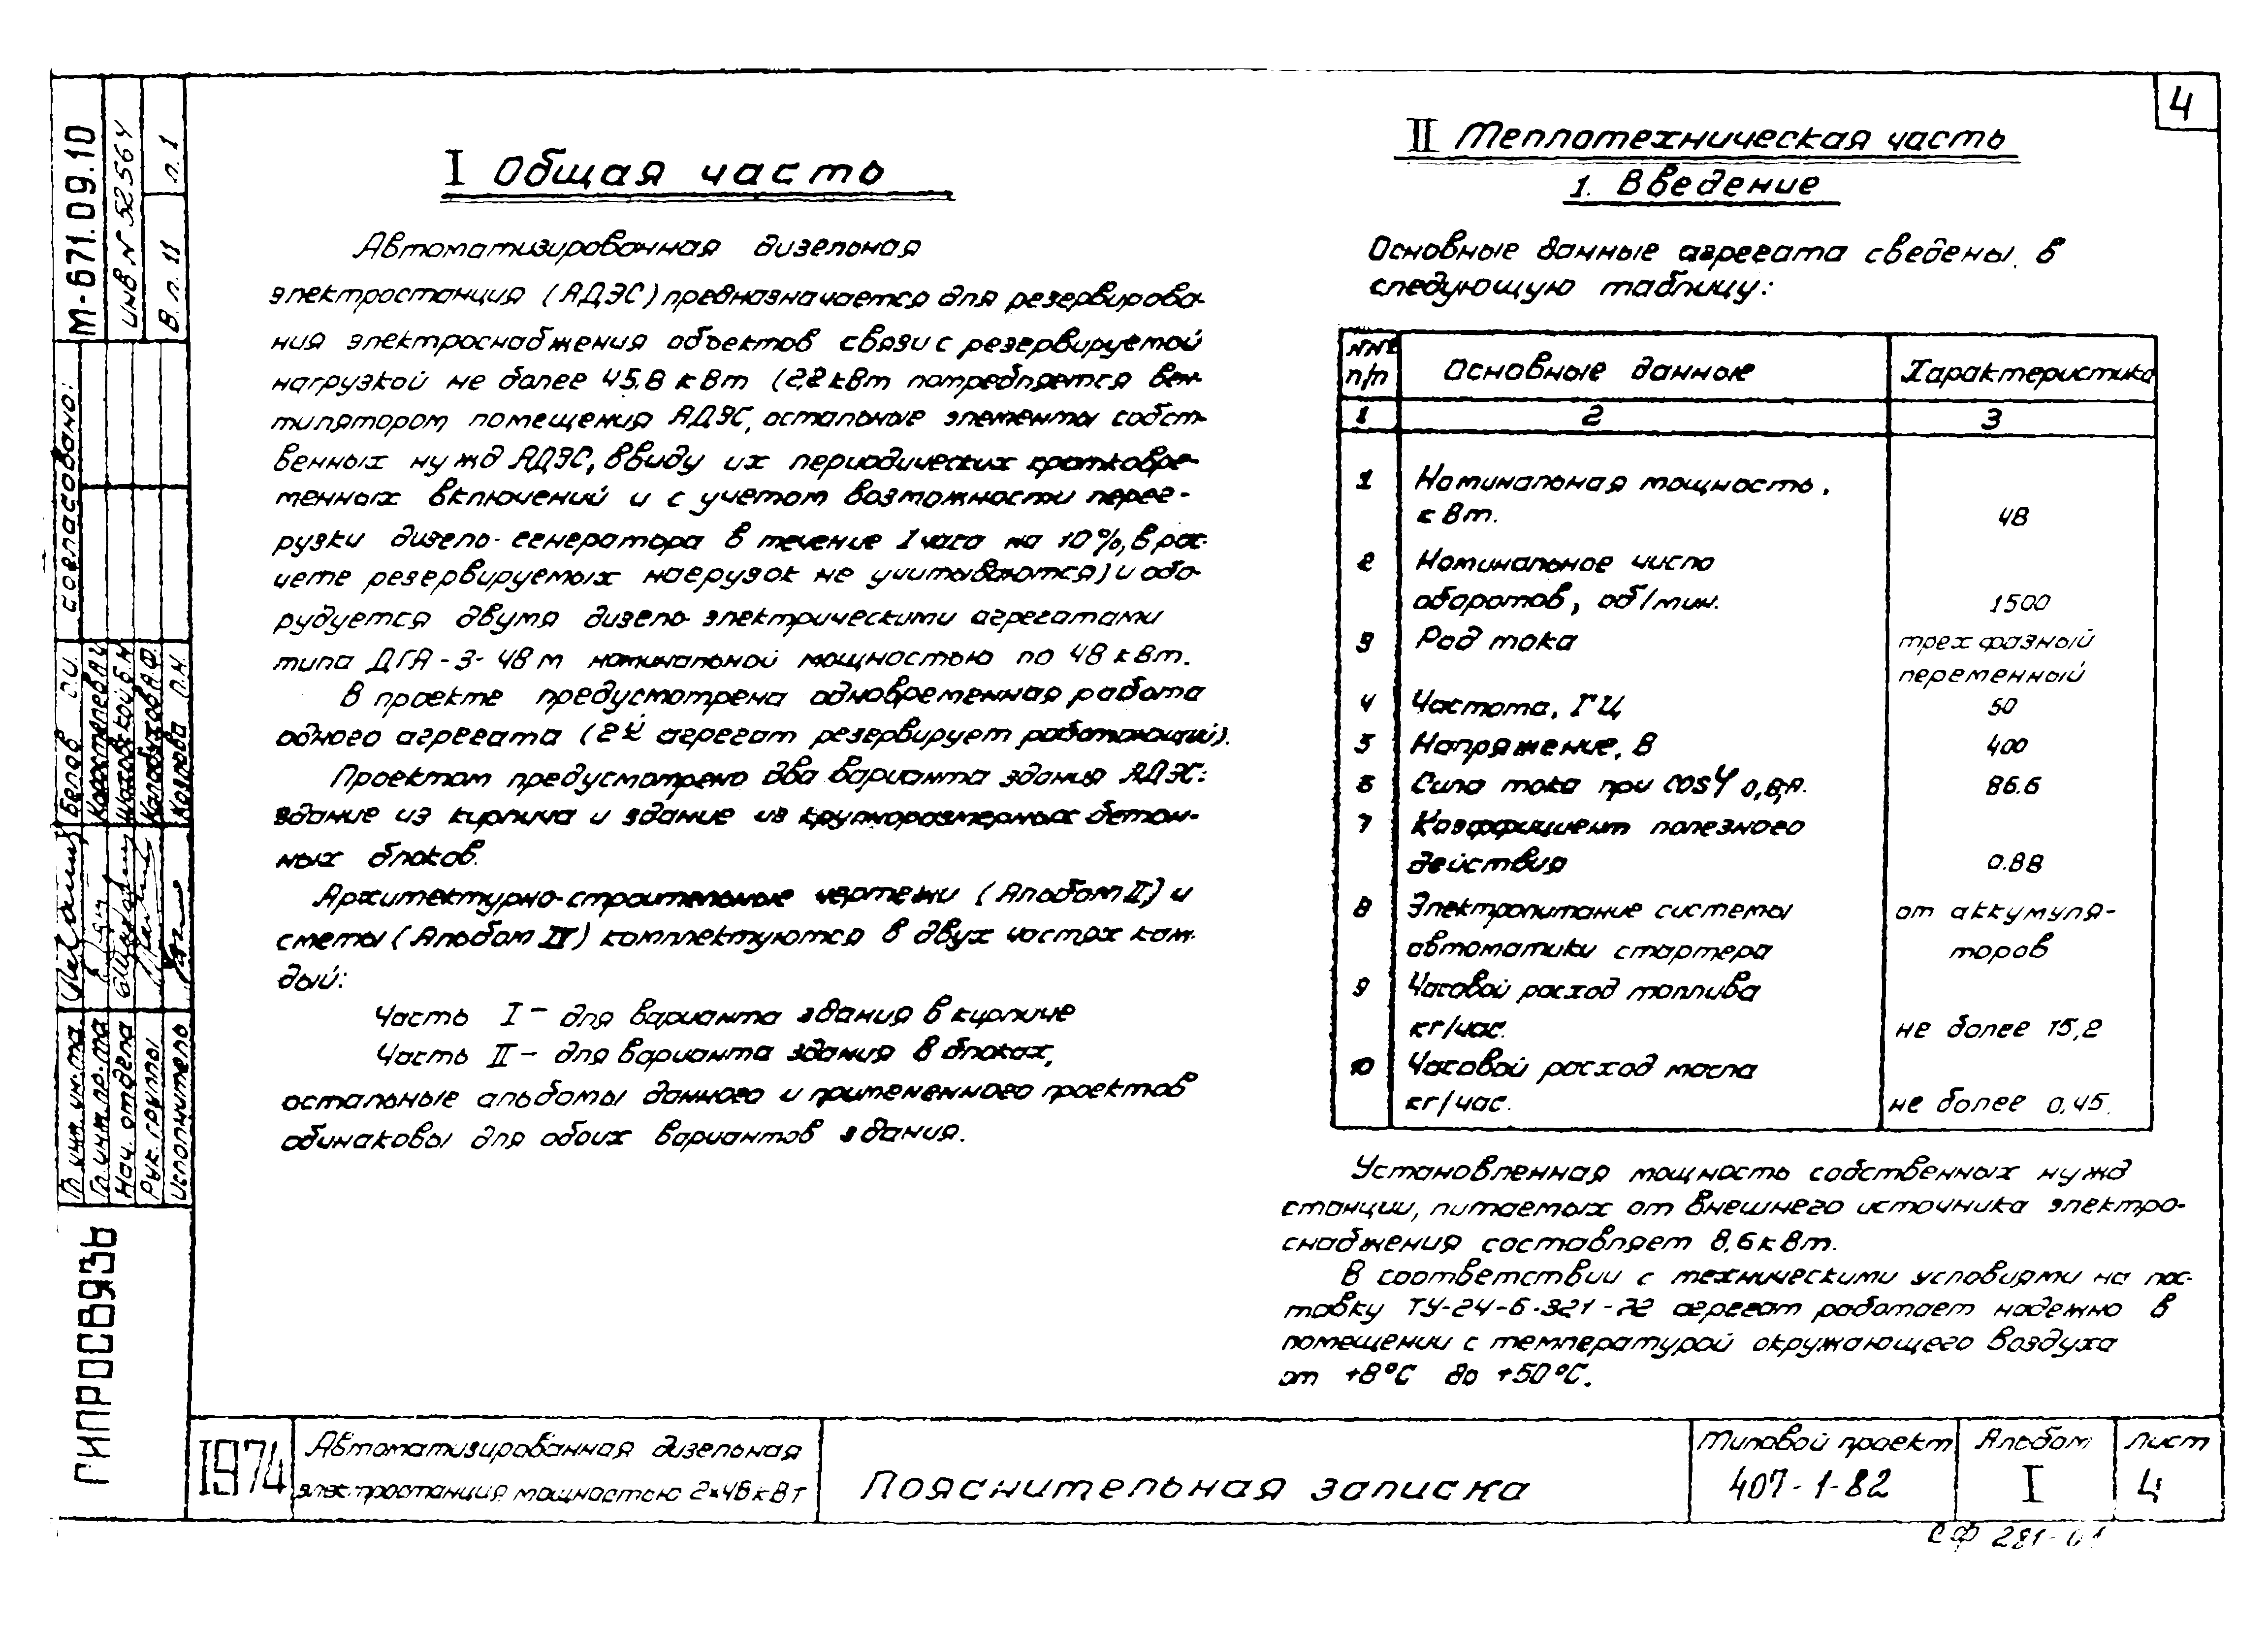 4
I Общая часть
Автоматизированная дизельная
электростанция (АДЭС) предназначается для резервирова-
ния электроснабжения объектов связи с резервируемой
нагрузкой не более 45,8 кВт (2,2 кВт потребляется вен-
тилятором помещения АДЭС, остальные элементы собст-
венных нужд АДЭС, ввиду их периодических кратковре-
менных включений и с учетом возможности перег-
рузки дизель-генератора в течение 1 часа на 10%, в рас-
чете резервируемых нагрузок не учитываются) и обо-
рудуется двумя дизель-электрическими агрегатами
типа ДГА-3-48м номинальной мощностью по 48 кВт.
В проекте предусмотрена одновременная работа
одного агрегата (2й агрегат резервирует работающий).
Проектом предусмотрено два варианта здания АДЭС:
здание из кирпича и здание из крупноразмерных бетон-
ных блоков.
Архитектурно-строительные чертежи (Альбом II) и
сметы (Альбом IV) комплектуются в двух частях каж-
дый:
Часть I – для варианта здания в кирпиче
Часть II – для варианта здания в блоках,
остальные альбомы данного и примененного проектов
одинаковы для обоих вариантов здания.
II Теплотехническая часть
1. Введение
Основные данные агрегата сведены в
следующую таблицу:
№№ п/п Основные данные Характеристика
1 2 3
1 Номинальная мощность,
кВт. 48
2 Номинальное число
оборотов, об/мин. 1500
3 Род тока трехфазный
переменный
4 Частота, ГЦ 50
5 Напряжение, В 400
6 Сила тока при cosφ 0,8,А. 86.6
7 Коэффициент полезного
действия 0.88
8 Электропитание системы от аккумуля-
автоматики стартера торов
9 Часовой расход топлива
кг/час. не более 15,2
10 Часовой расход масла
кг/час. не более 0,45.
Установленная мощность собственных нужд
станции, питаемых от внешнего источника электро-
снабжения составляет 8,6 кВт.
В соответствии с техническими условиями на пос-
тавку ТУ-24-6-321-72 агрегат работает надежно в
помещении с температурой окружающего воздуха
от +8°С до +50°С.
М-671.09.10
ИНВ N 52564
В.п. 11 л. 1
Согласовано:
Гл. инж. ин-та Белов С.И.
Гл. инж. пр-та
Нач. отдела
Рук. группы
Исполнитель
ГИПРОСВЯЗЬ
1974
Автоматизированная дизельная
электростанция мощностью 2×48 кВт
Пояснительная записка
Типовой проект
407-1-82
Альбом
I
Лист
4
СФ 281-01